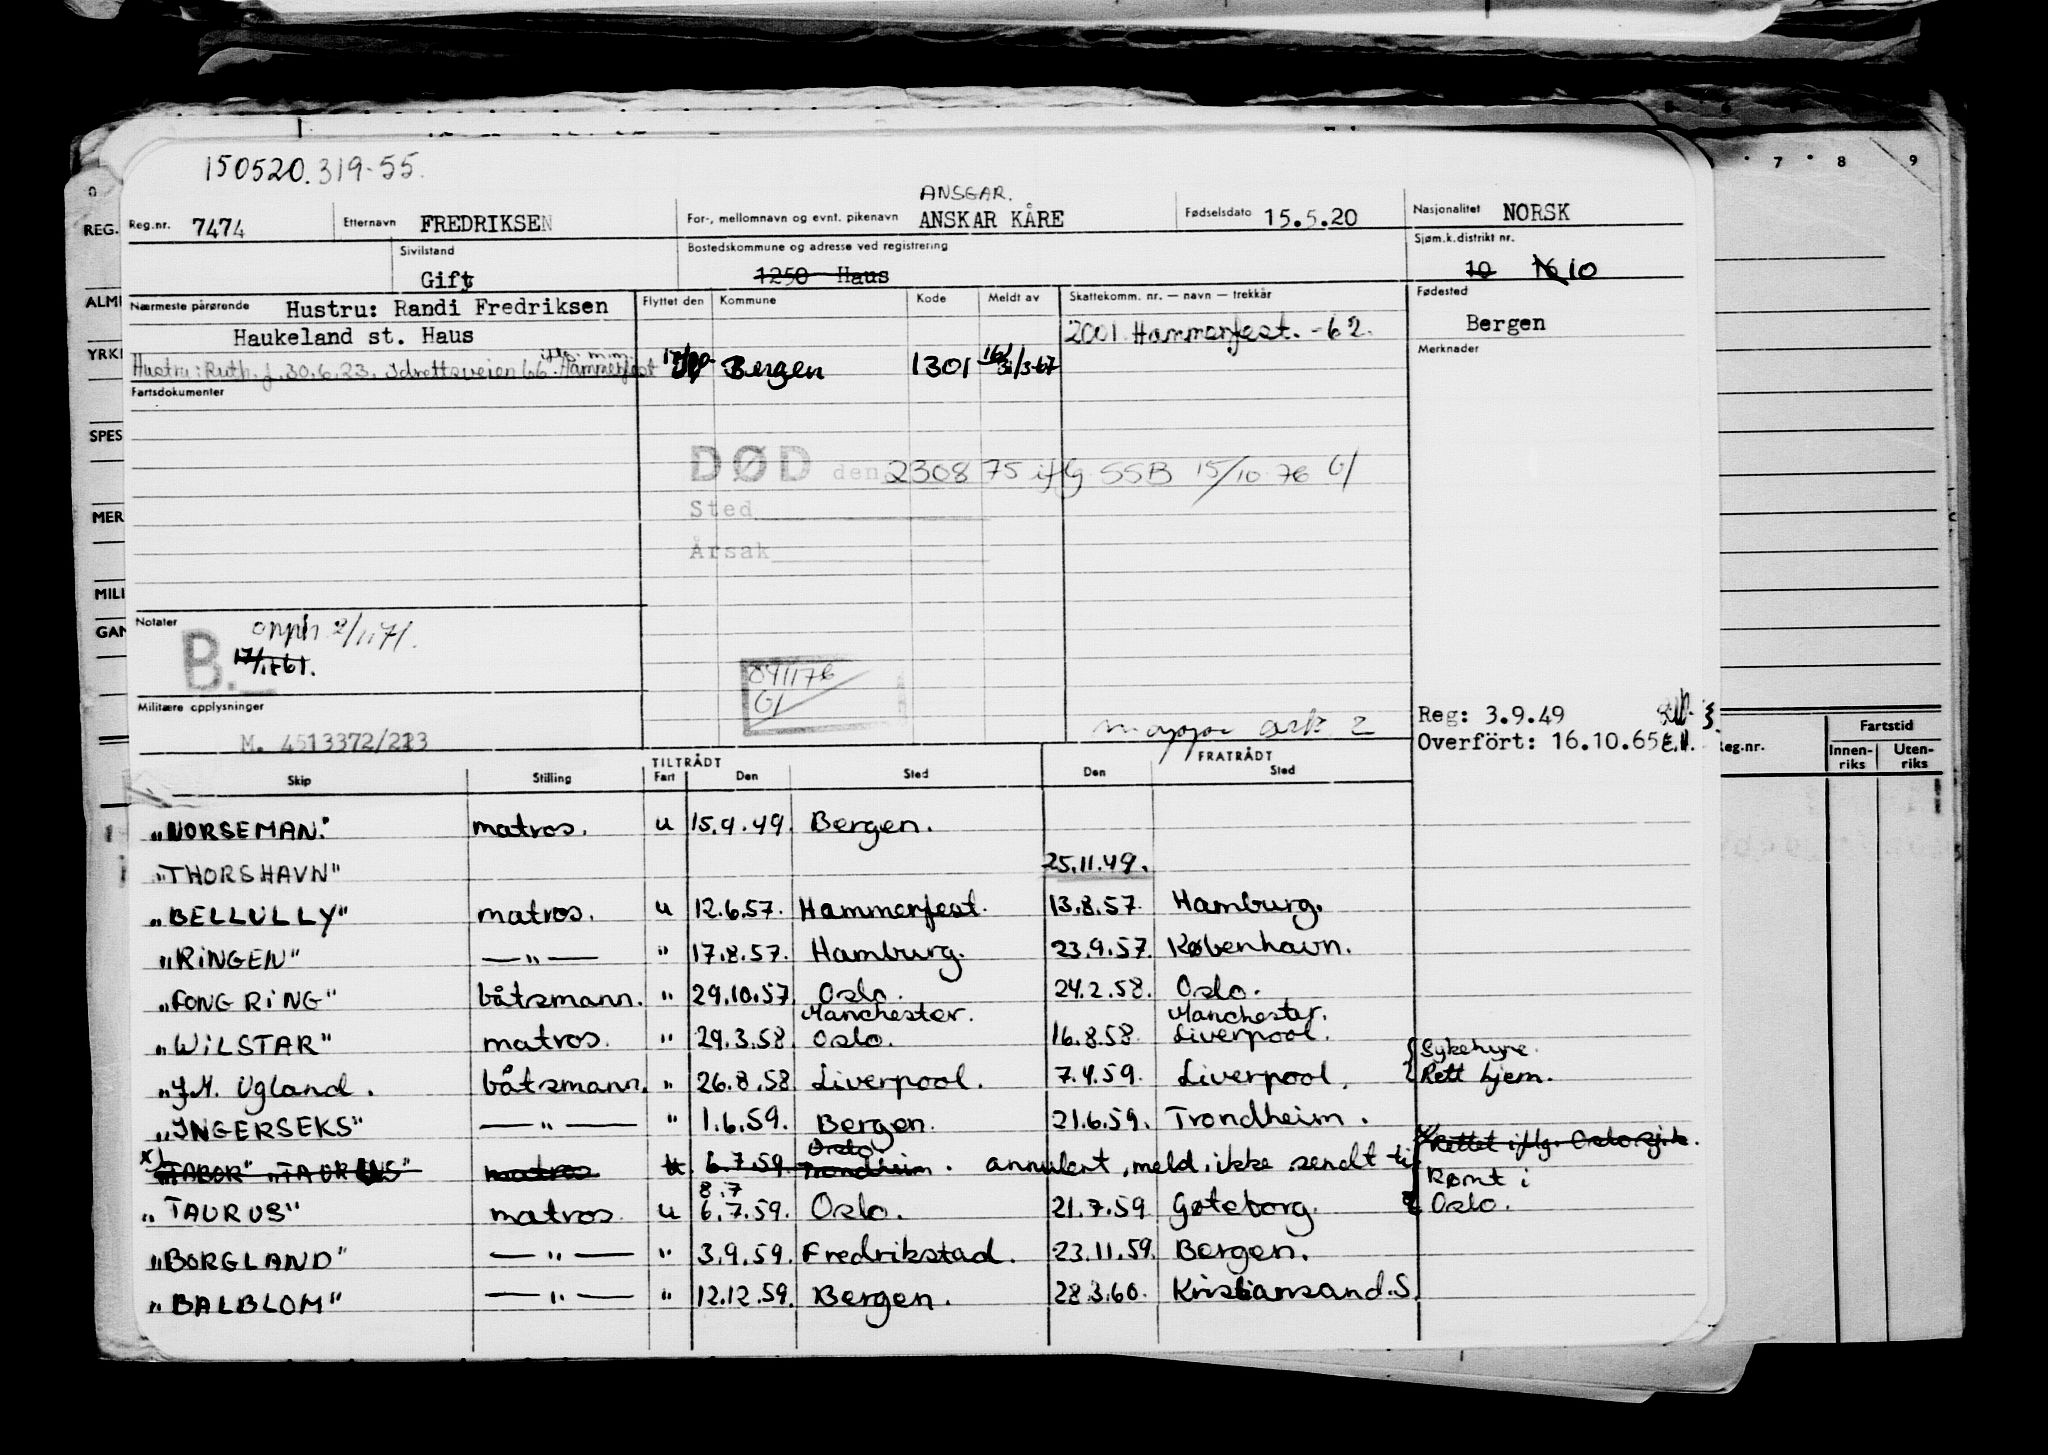 7 8 9
0
150520.319-55.
ANSGAR.
REG. Reg.nr. 7474 Etternavn FREDRIKSEN For-, mellomnavn og evnt. pikenavn ANSKAR KÅRE Fødselsdato 15.5.20 Nasjonalitet NORSK
Sivilstand Gift Bostedskommune og adresse ved registrering 1250 Haus Sjøm.k.distrikt nr. 10 16 10
ALM Nærmeste pårørende Hustru: Randi Fredriksen Flyttet den Kommune Kode Meldt av Skattekomm. nr. — navn — trekkår Fødested
Haukeland st. Haus 2001 Hammerfest. -62. Bergen
YRK Hustru: Ruth f. 30.6.23. Idrettsveien 66. Hammerfest Bergen 1301 31/3-67 Merknader
Fartsdokumenter
SPES
DØD den 230875 iflg SSB 15/10 76
MER Sted
Årsak
MILI
GAN Notater
B. opph 2/1.71.
17/1-61.
091176
Militære opplysninger
M. 4513372/213
mappe ark 2
Reg: 3.9.49
Overført: 16.10.65 E.H.
Reg.nr. Fartstid
Innen-riks Uten-riks
TILTRÅDT FRATRÅDT
Skip Stilling Fart Den Sted Den Sted
"NORSEMAN." matros. u 15.9.49. Bergen.
"THORSHAVN" 25.11.49.
"BELLULLY" matros. u 12.6.57. Hammerfest. 13.8.57. Hamburg.
"RINGEN" —"— " 17.8.57. Hamburg. 23.9.57. København.
"FONG RING" båtsmann. " 29.10.57. Oslo. 24.2.58. Oslo.
Manchester. Manchester.
"WILSTAR" matros. " 29.3.58. Oslo. 16.8.58. Liverpool.
Sykehyre.
"J.M. Ugland. båtsmann. " 26.8.58. Liverpool. 7.4.59. Liverpool. Rett hjem.
"INGERSEKS" —"— " 1.6.59. Bergen. 21.6.59. Trondheim.
Oslo x) Rettet iflg. Oslo sjk.
x) "TABOR" "TAURUS" matros u 6.7.59. Trondheim. annulert, meld. ikke sendt til
8.7 Rømt i
"TAURUS" matros. u 6.7.59. Oslo. 21.7.59 Gøteborg. Oslo.
"BORGLAND" —"— " 3.9.59. Fredrikstad. 23.11.59. Bergen.
"BALBLOM" —"— " 12.12.59. Bergen. 28.3.60. Kristiansand.S.